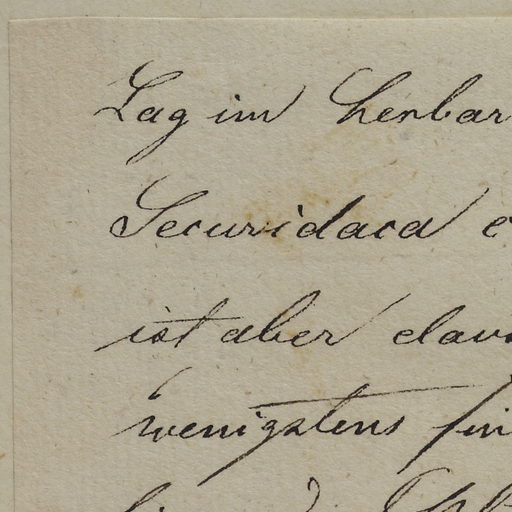 Lag im Herbar
Securidaca
ist aber
wenigstens